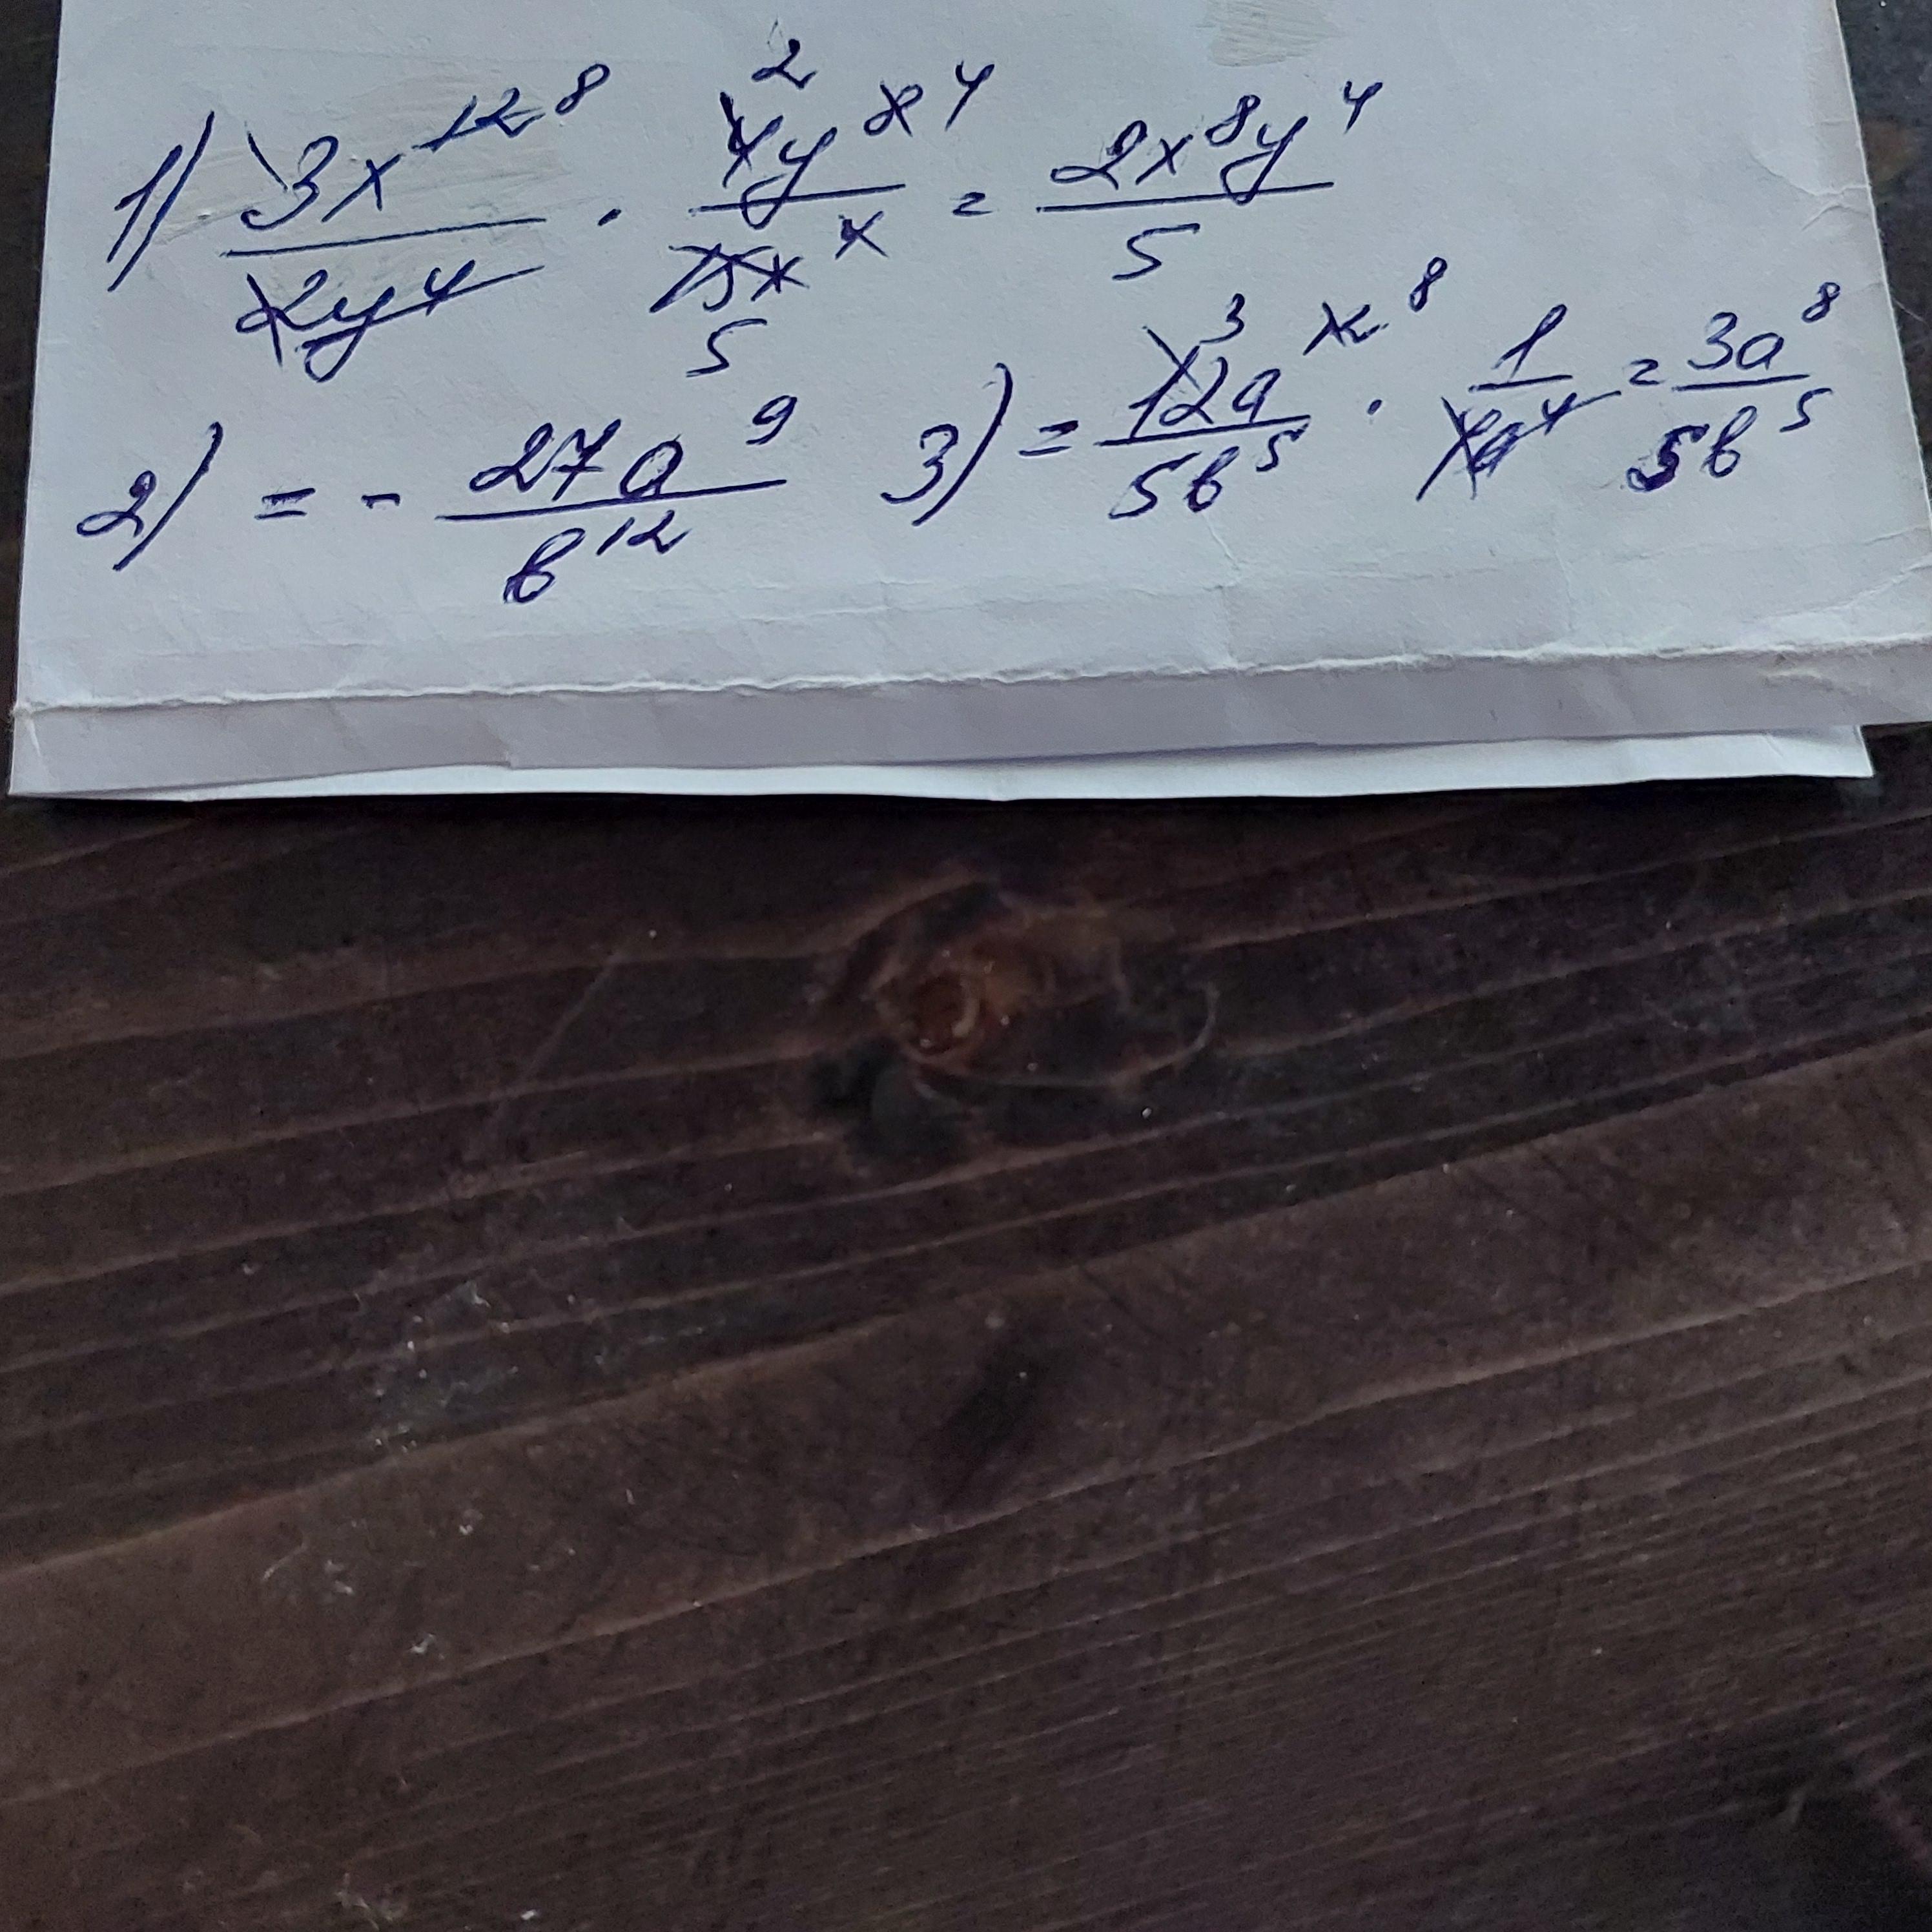 1) 3x^12 8 / 2y^4 · 2 4y^8 4 / 15x^4 5 = 2x^8y^4 / 5
2) = - 27a^9 / b^12 3) = 3 12a^12 8 / 5b^5 · 1 / 4a^4 = 3a^8 / 5b^5